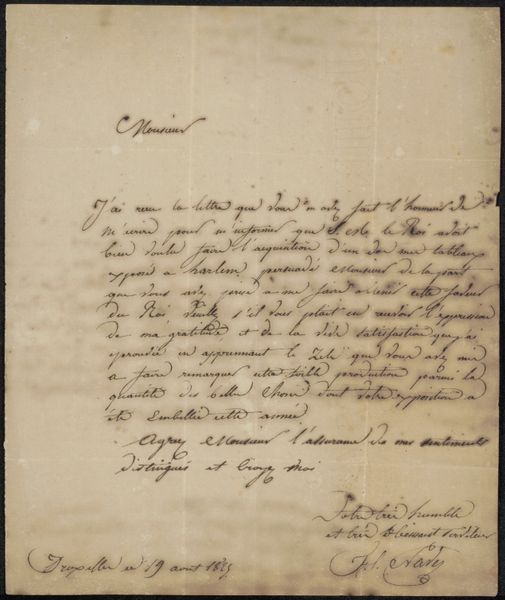 Monsieur
J'ai recu la lettre que vous m'avez fait l'honneur de
m'ecrire pour m'informer que S. M. le Roi avoit
bien voulu faire l'acquisition d'un de mes tableaux
exposé a harlem, persuadé Monsieur de la part
que vous avez prise a me faire obtenir cette faveur
du Roi Veuillez s'il vous plait en recevoir l'expression
de ma gratitude et de la vive satisfaction que j'ai
eprouvée en apprennant le zele que vous avez mis
a faire remarquer cette foible production parmi la
quantité des belles choses dont votre exposition a
été Embellie cette année
Agreez Monsieur l'assurance de mes sentiments
distingués et Croyez moi
Votre très humble
et très obéissant serviteur
Navez
Bruxelles ce 19 aout 1825